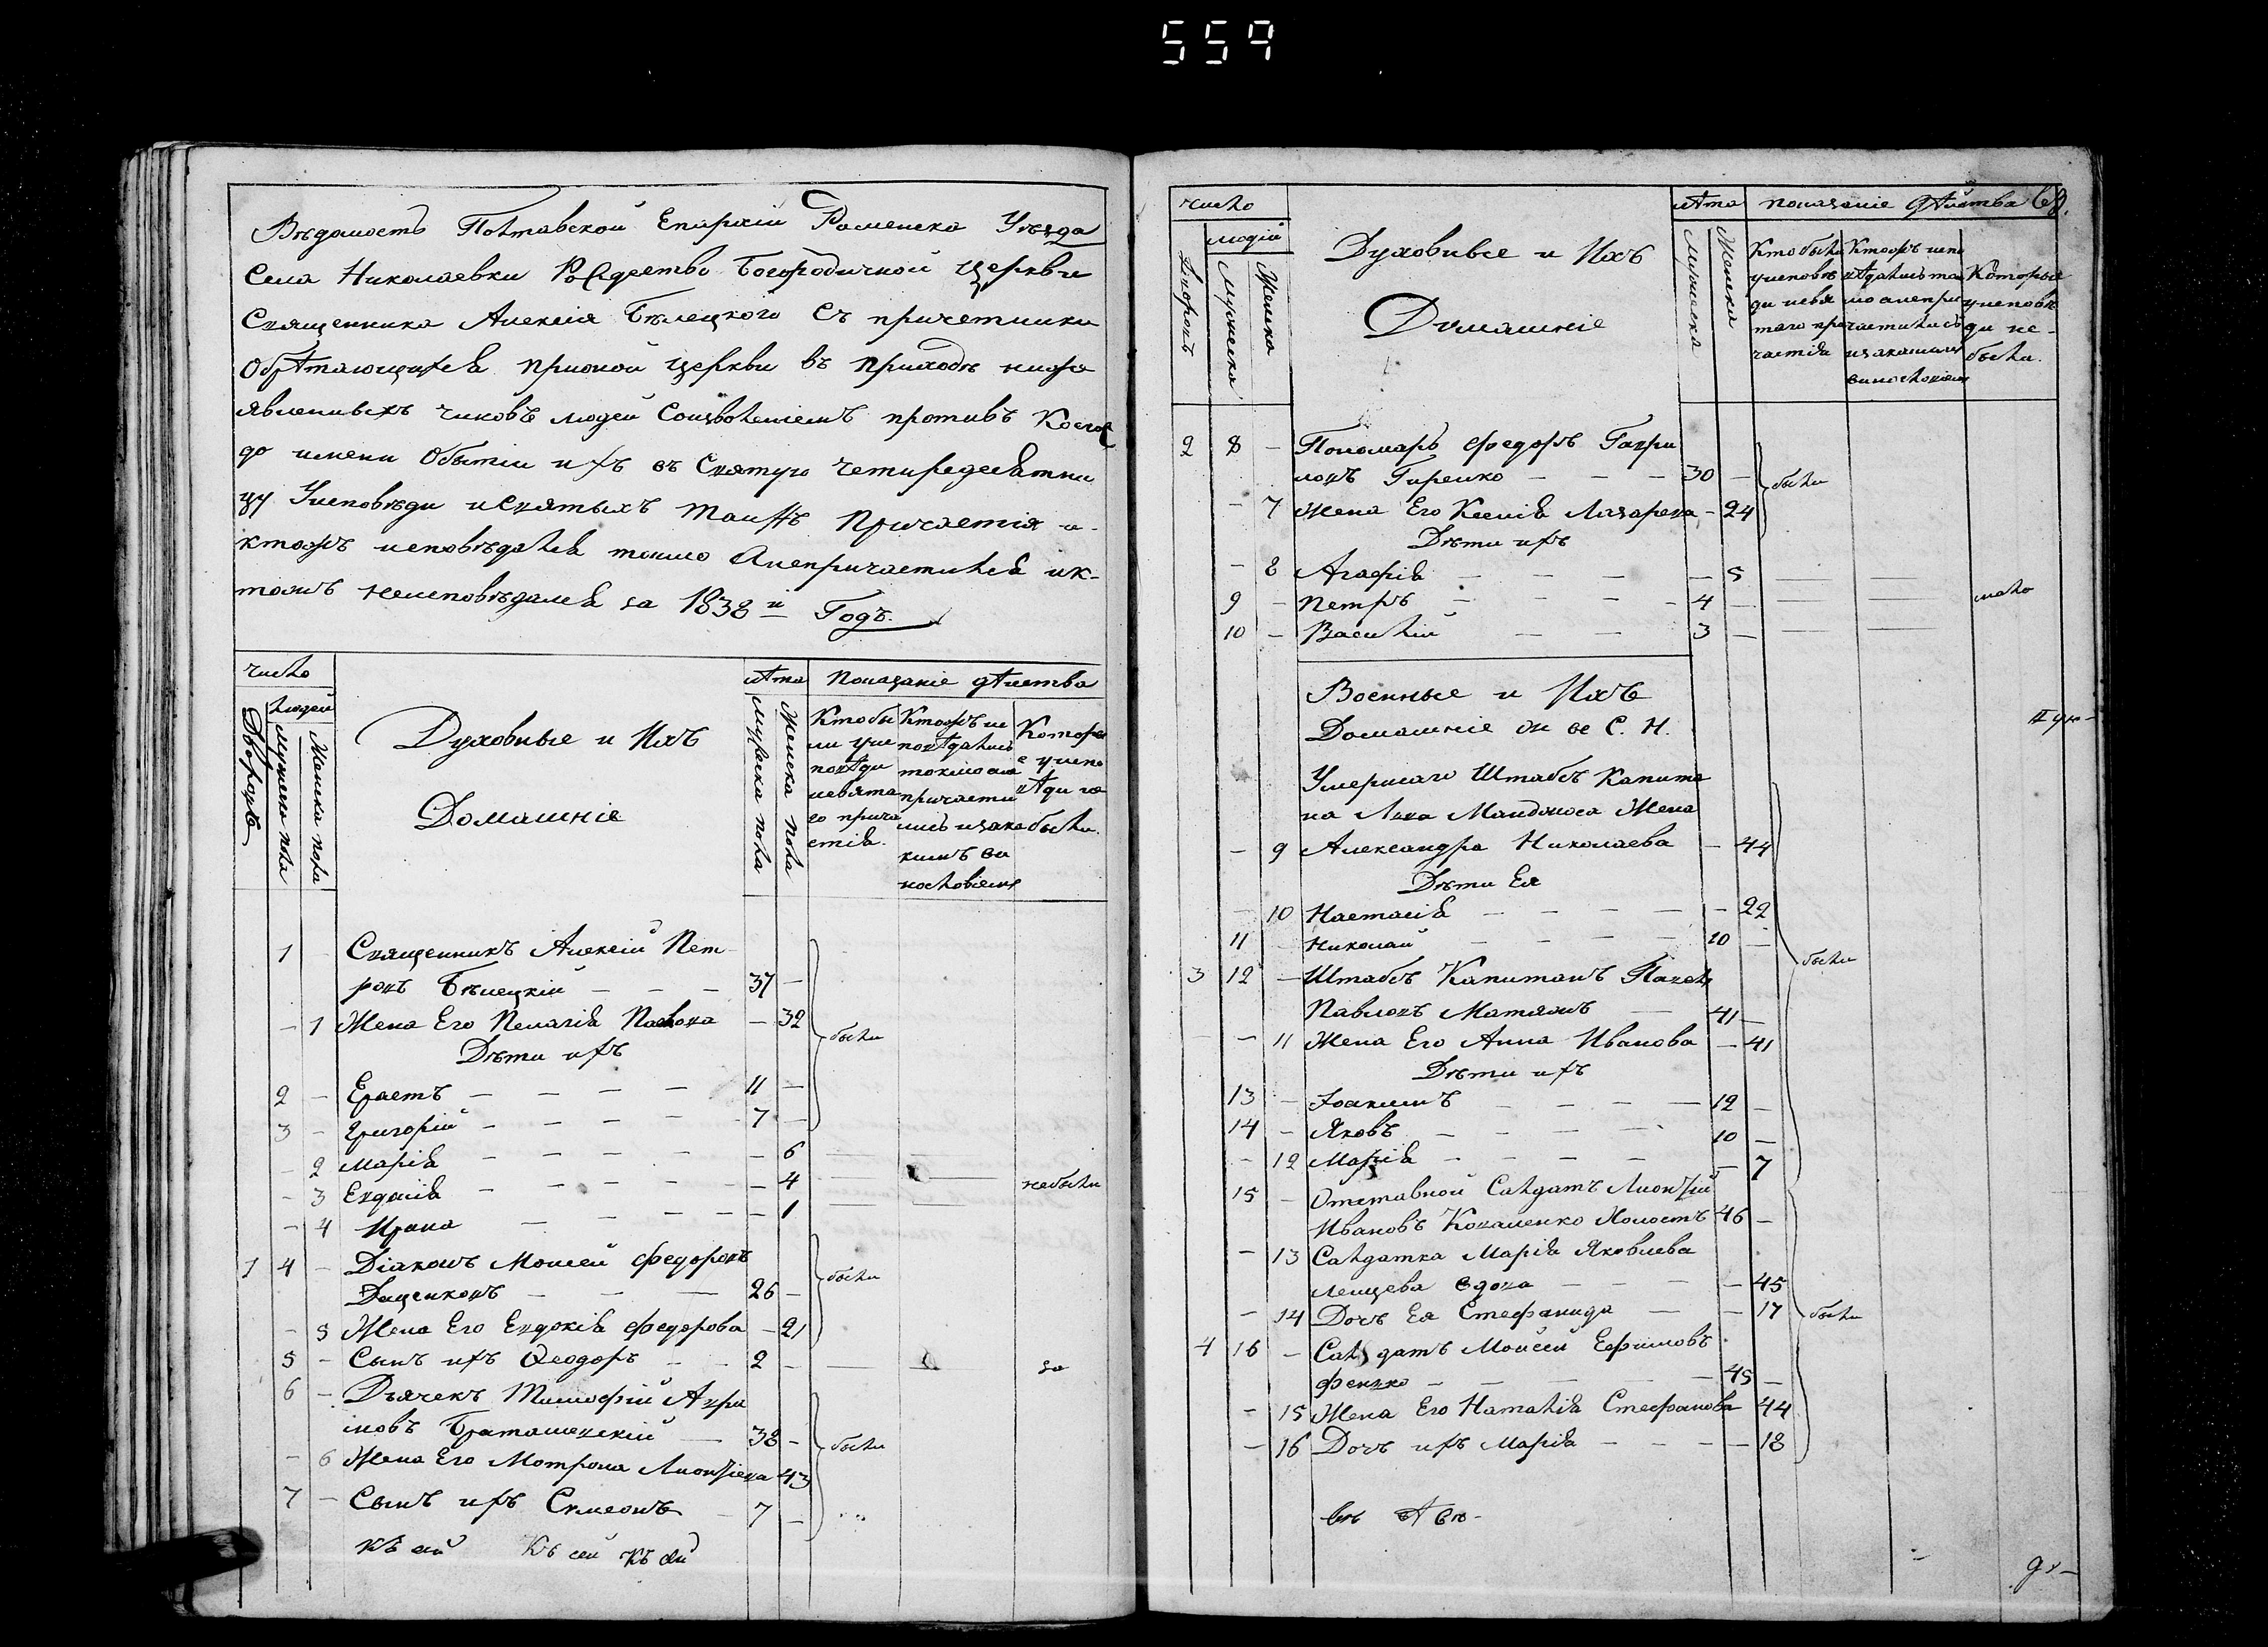 559
Вѣдомость Полтавской Епархіи Роменска Уѣзда
Села Николаевки Рождество Богородичной Церкви
Священника Алексія Бѣлецкого Съ причетники
Обрѣтающихся прионой церкви въ приходѣ ниже
явленныхъ чиновъ людей Соизволеніемъ противъ Коего
до имени Обытіи ихъ въ Святую Четиредесятни
цу Уисповѣди исвятыхъ таинъ Причастія и
ктожъ исповѣдался токмо Анепричастился ик
тожъ неисповѣдался за 1838 й Годъ.
число
людей
Дворовъ
Мужеска пола
Женска пола
Духовные и Ихъ
Домашніе
лѣта
Мужеска пола
Женска пола
Показаніе дѣйства
Кто бы
ли уис
повѣди
исвята
го прича
стія.
Ктожъ ис
повѣдались
токмо ане
причасти
лись изака
кимъ ви
нословіемъ
Которы
е уиспо
вѣди не
были.
1 - Священникъ Алексій Пет
ровъ Бѣлецкій - - - 37 -
- 1 Жена Его Пелагія Павлова - 32
были
Дѣти ихъ
2 - Ерастъ - - - - 11 -
3 - Григорій - - - - 7 -
- 2 Марія - - - - - 6
- 3 Евдокія - - - - - 4
небыли
- 4 Ирина - - - - - 1
1 4 - Діаконъ Моисей Федоровъ
Даценковъ - - - 26 -
были
- 5 Жена Его Евдокія Федорова - 21
5 - Сынъ ихъ Феодоръ - - 2 -
за
6 - Дьячекъ Тимофій
новъ - 38 -
были
- 6 Жена Его Мотрона 43
7 - Сынъ ихъ Симеонъ - 7 -
число
людій
Дворовъ
Мужеска
Женска
Духовные и Ихъ
Домашніе
лѣта
Мужеска
Женска
показаніе дѣйства
Кто были
уисповѣ
ди исвя
таго при
частія
Ктожъ испо
вѣдались то
мо анепри
частились
изакакимъ
винословіемъ
Которые
уисповѣ
ди не
были.
2 8 - Пономарь Федоръ Гаври
ловъ Гиренко - - - 30 -
были
- 7 Жена Его Ксенія Лазарева - 24
Дѣти ихъ
- 8 Агафія - - - - 5
9 - Петръ - - - - 4 -
мало
10 - Василій - - 3 -
Военные и Ихъ
Домашніе
С. Н.
Умершаго Штабсъ Капита
на Жена
- 9 Александра Николаева - 44
Дѣти Ея
- 10 Настасія - - - - - 22
11 - Николай - - - - 10 -
были
3 12 - Штабсъ Капитанъ Павелъ
Павловъ - 41 -
- 11 Жена Его Анна Иванова - 41
Дѣти ихъ
13 - Іоакимъ - - - - 12 -
14 - Яковъ - - - - 10 -
- 12 Марія - - - - - 7
15 - Отставной Салдатъ
Ивановъ Коваленко Холостъ 46 -
- 13 Салдатка Марія Яковлева
вдова - - - - 45
- 14 Дочь Ея Стефанида - - 17
были
4 16 - Салдатъ Моисей Ефимовъ
Фенко - - - - - 45 -
- 15 Жена Его Наталія Стефанова 44
- 16 Дочь ихъ Марія - - - - 18